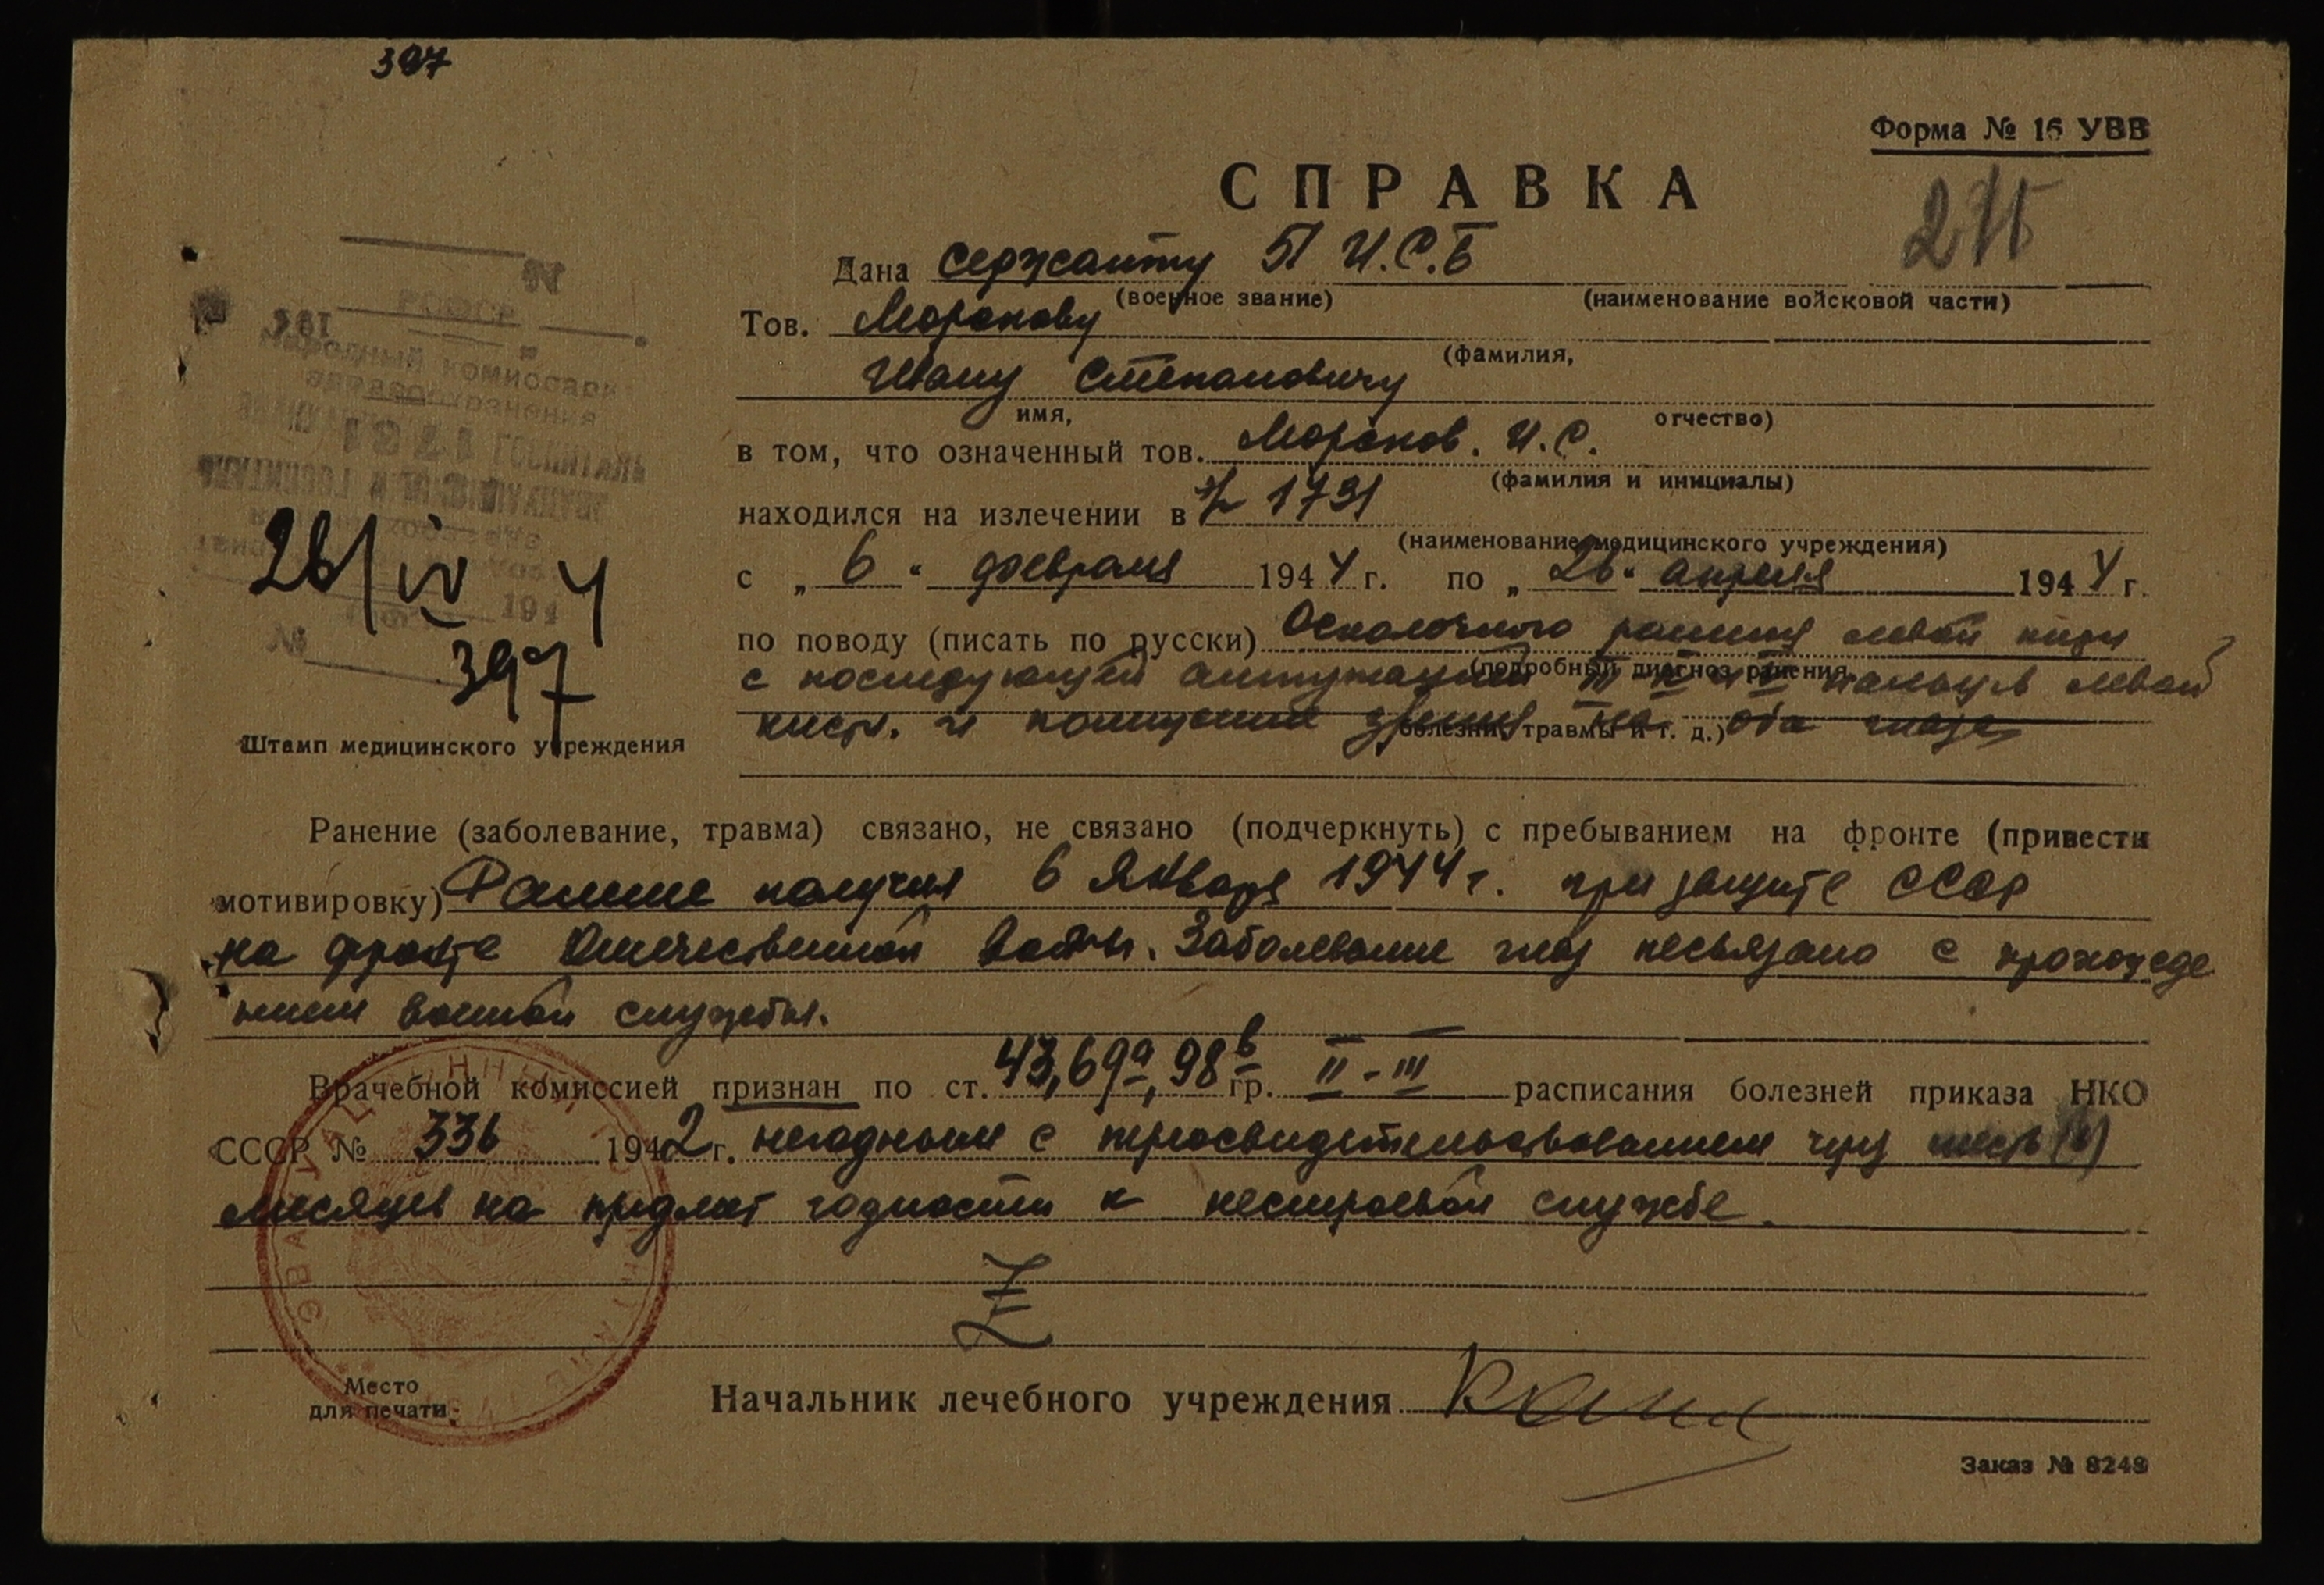 397
Форма № 16 УВВ
СПРАВКА
Дана сержанту 51 И.С.Б
(военное звание) (наименование войсковой части)
Тов. Моронову
(фамилия,
Ивану Степановичу
имя, отчество)
в том, что означенный тов. Моронов. И.С.
(фамилия и инициалы)
находился на излечении в 1731
(наименование медицинского учреждения)
с „ 6 “ февраля 1944 г. по „ 26 “ апреля 1944 г.
по поводу (писать по русски) Осколочного ранения левой кисти
(подробный диагноз ранения,
с последующей ампутацией III IV и V пальцев левой
кисти. и понижение зрения на оба глаза
болезни, травмы и т. д.)
Народный комиссариат
здравоохранения
26/IV 4
194
№ 397
Штамп медицинского учреждения
Ранение (заболевание, травма) связано, не связано (подчеркнуть) с пребыванием на фронте (привести
мотивировку) Ранение получил 6 Января 1944 г. при защите СССР
на фронте Отечественной войны. Заболевание глаз несвязано с прохожде
нием военной службы.
Врачебной комиссией признан по ст. 43, 69а, 98б гр. II - III расписания болезней приказа НКО
СССР № 336 1942 г. негодным с переосвидетельствованием через шесть (6)
месяцев на предмет годности к нестроевой службе.
Место
для печати.
Начальник лечебного учреждения
Заказ № 8249